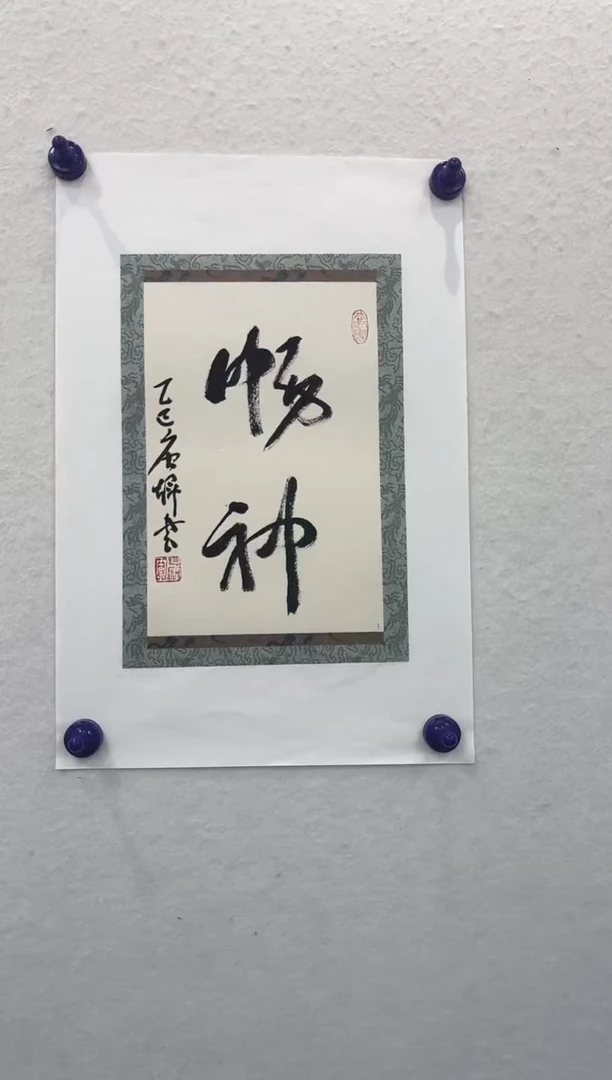 畅神
乙巳唐辉书